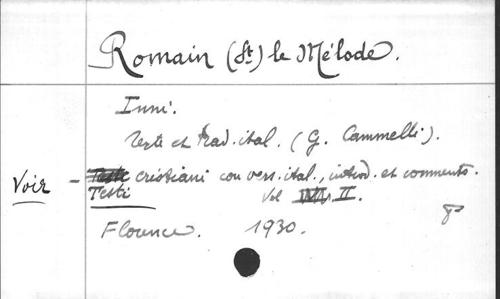 Romain (St) le Mélode.
Inni.
Texte et trad. ital. (G. Cammelli).
Voir - Testi cristiani con vers. ital., introd. et commento.
Vol II.
Florence. 1930.